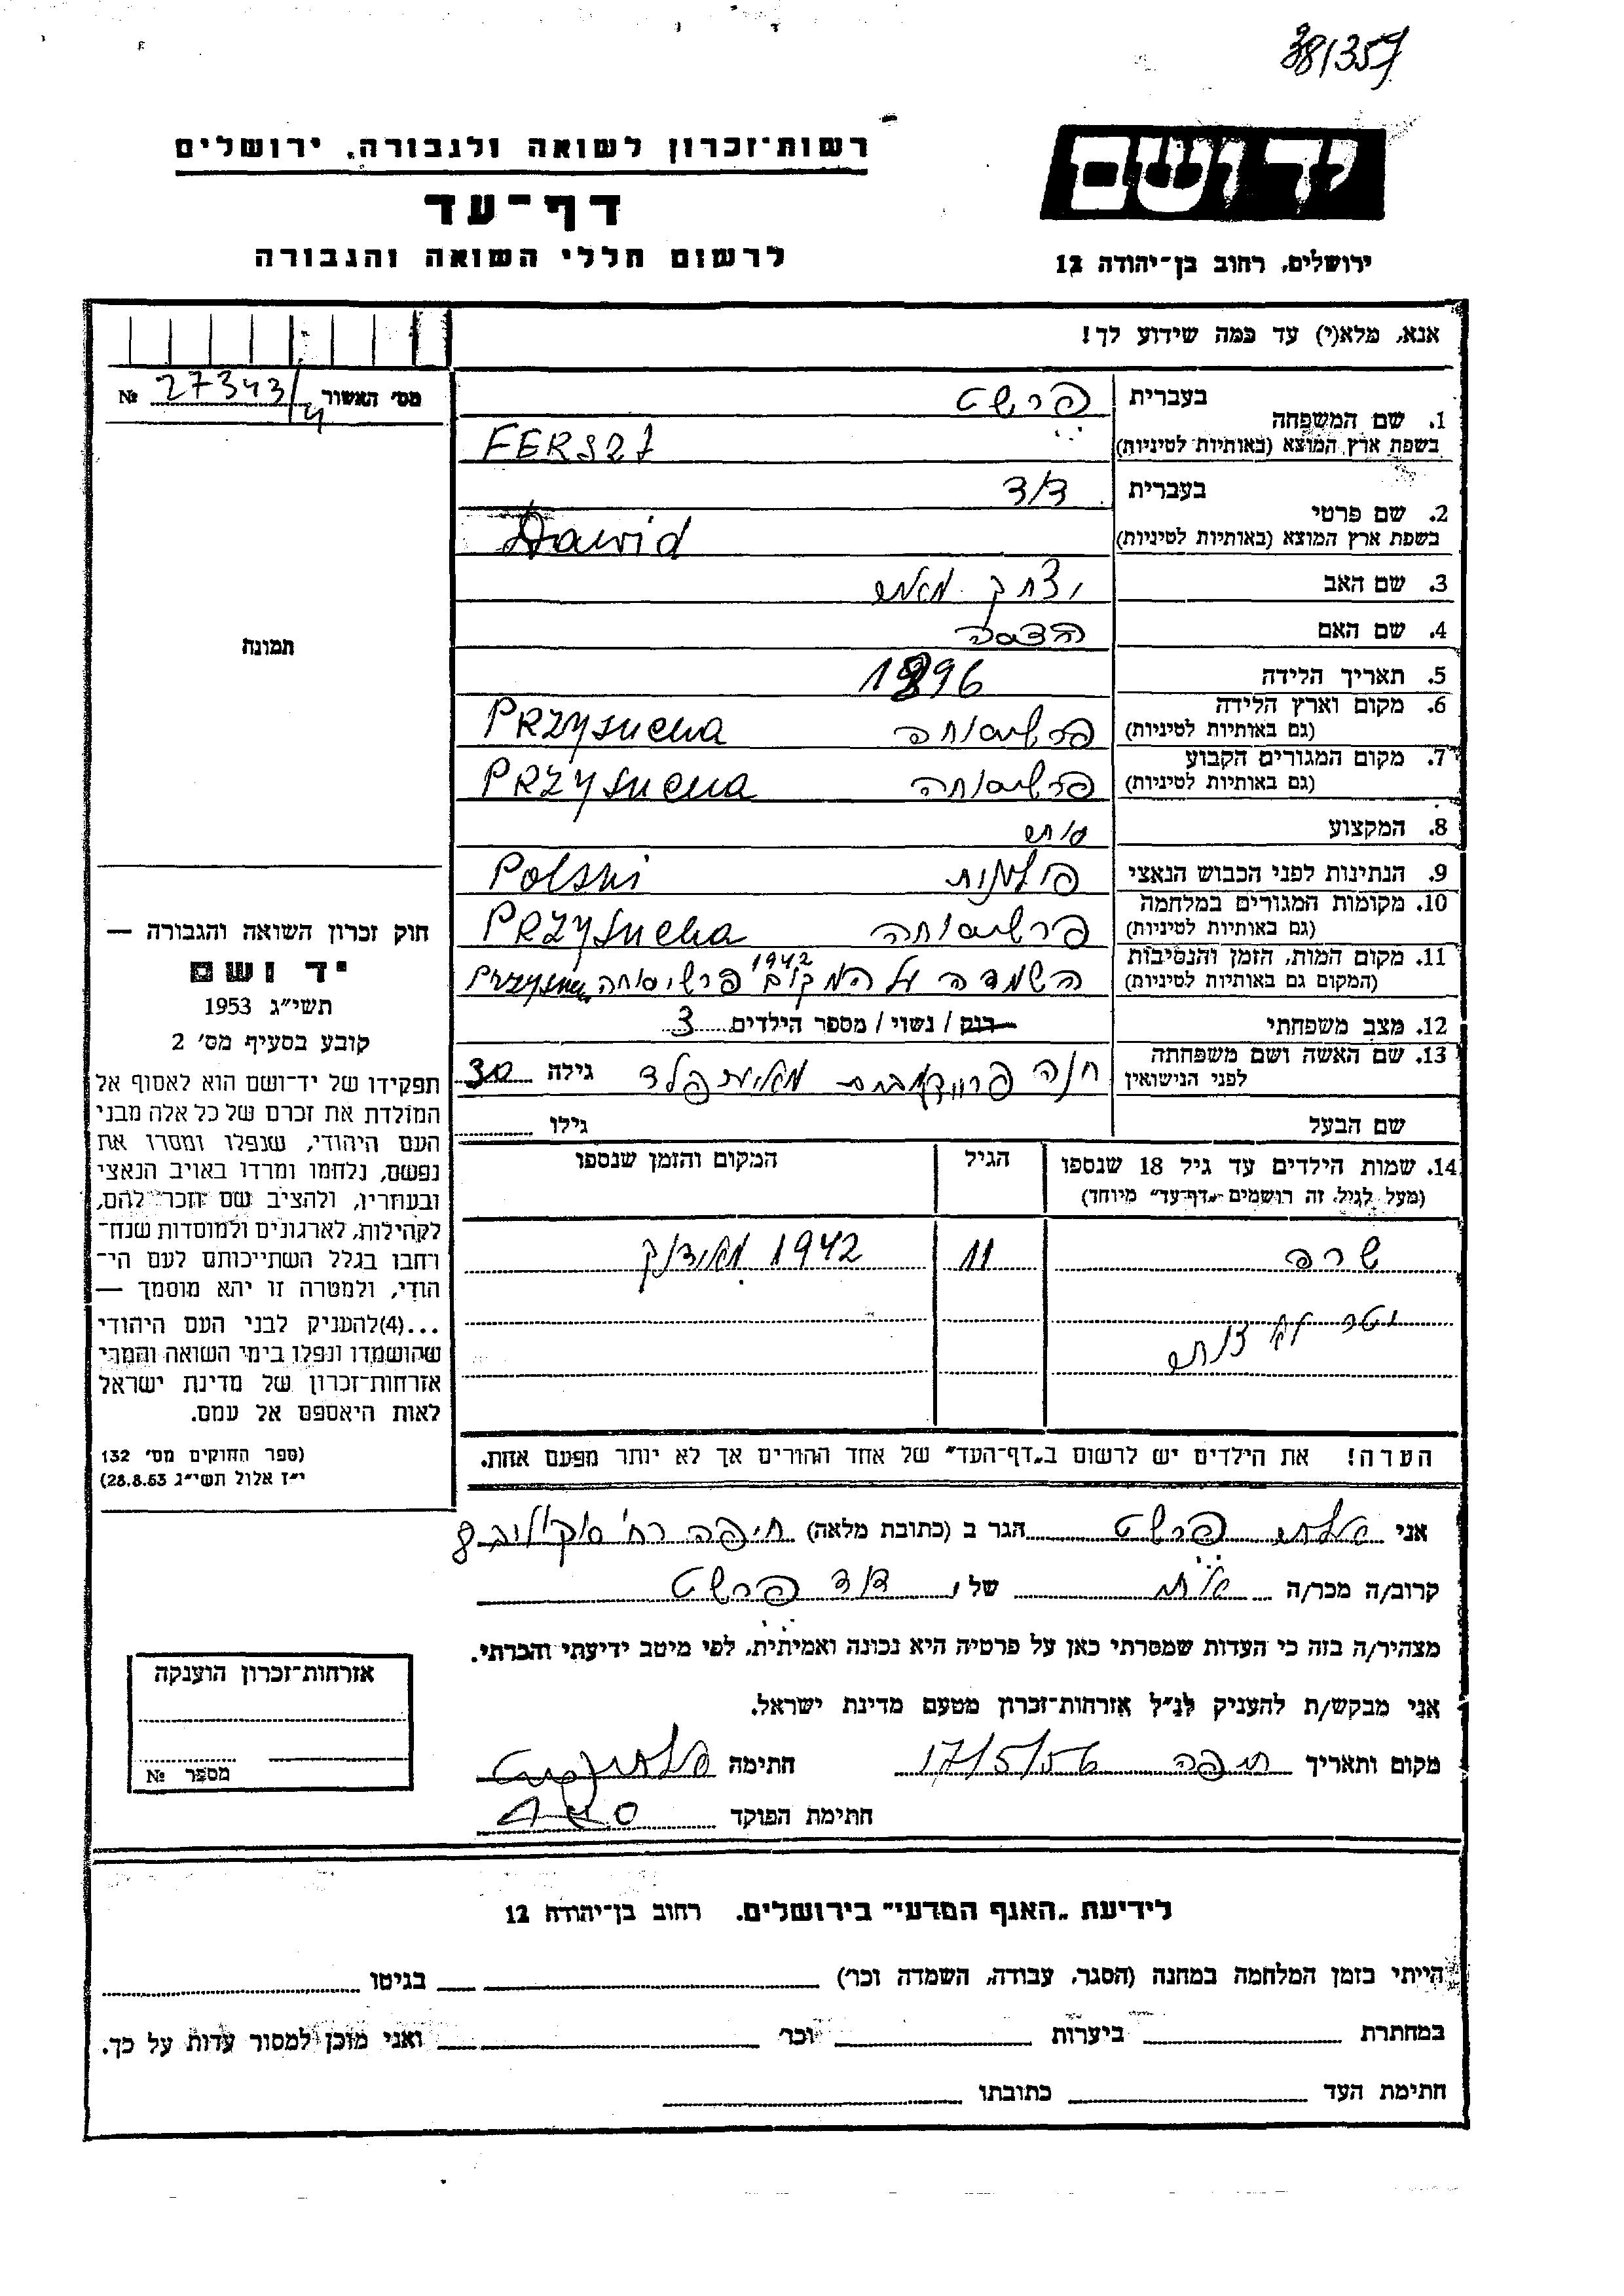 381357
רשות־זכרון לשואה ולגבורה, ירושלים
דף־עד
לרשום חללי השואה והגבורה
יד ושם
ירושלים, רחוב בן־יהודה 12
אנא, מלא(י) עד כמה שידוע לך!
מס' האשור 27343/4 №
תמונה
1. שם המשפחה
בעברית פרשט
בשפת ארץ המוצא (באותיות לטיניות) FERSZT
2. שם פרטי
בעברית דוד
בשפת ארץ המוצא (באותיות לטיניות) Dawid
3. שם האב יצחק
4. שם האם הדסה
5. תאריך הלידה 1896
6. מקום וארץ הלידה
(גם באותיות לטיניות) פרשיסוחה Przysucha
7. מקום המגורים הקבוע
(גם באותיות לטיניות) פרשיסוחה Przysucha
8. המקצוע סוחר
9. הנתינות לפני הכבוש הנאצי פולנית Polski
10. מקומות המגורים במלחמה
(גם באותיות לטיניות) פרשיסוחה Przysucha
11. מקום המות, הזמן והנסיבות
(המקום גם באותיות לטיניות) השמדה על המקום 1942 פרשיסוחה
12. מצב משפחתי רוק / נשוי / מספר הילדים 3
13. שם האשה ושם משפחתה
לפני הנישואין חנה גילה 30
שם הבעל גילו
14. שמות הילדים עד גיל 18 שנספו
(מעל לגיל זה רושמים „דף־עד” מיוחד)
הגיל
המקום והזמן שנספו
שרה 11 1942 מאידנק
יתר לא
הערה! את הילדים יש לרשום ב„דף־העד” של אחד ההורים אך לא יותר מפעם אחת.
חוק זכרון השואה והגבורה —
יד ושם
תשי״ג 1953
קובע בסעיף מס' 2
תפקידו של יד־ושם הוא לאסוף אל
המולדת את זכרם של כל אלה מבני
העם היהודי, שנפלו ומסרו את
נפשם, נלחמו ומרדו באויב הנאצי
ובעוזריו, ולהציב שם וזכר להם,
לקהילות, לארגונים ולמוסדות שנח־
רבו בגלל השתייכותם לעם הי־
הודי, ולמטרה זו יהא מוסמך —
...(4)להעניק לבני העם היהודי
שהושמדו ונפלו בימי השואה והמרי
אזרחות־זכרון של מדינת ישראל
לאות היאספם אל עמם.
(ספר החוקים מס' 132
י״ז אלול תשי״ג 28.8.53)
אני פרשט הגר ב (כתובת מלאה) חיפה רח' סוקולוב 8
קרוב/ה מכר/ה אח של דוד פרשט
מצהיר/ה בזה כי העדות שמסרתי כאן על פרטיה היא נכונה ואמיתית, לפי מיטב ידיעתי והכרתי.
אני מבקש/ת להעניק לנ״ל אזרחות־זכרון מטעם מדינת ישראל.
מקום ותאריך חיפה 17/5/56 חתימה
חתימת הפוקד
אזרחות־זכרון הוענקה
מספר №
לידיעת „האגף המדעי” בירושלים. רחוב בן־יהודה 12
הייתי בזמן המלחמה במחנה (הסגר, עבודה, השמדה וכר') בגיטו
במחתרת ביערות וכר' ואני מוכן למסור עדות על כך.
חתימת העד כתובתו